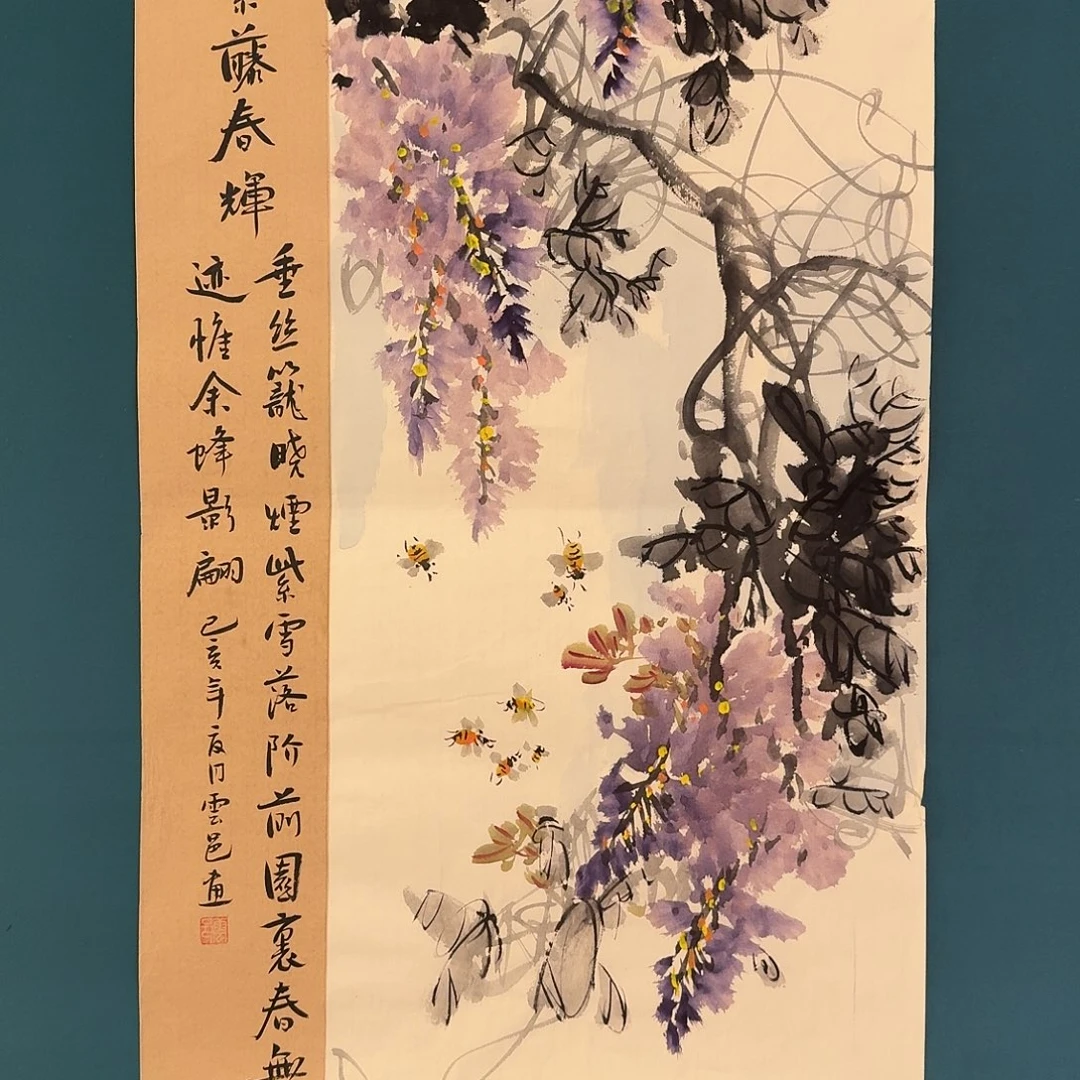 紫藤春輝
垂丝籠晓煙紫雪落阶前園裏春無
迹惟余蜂影翩
己亥年夏月雲邑画